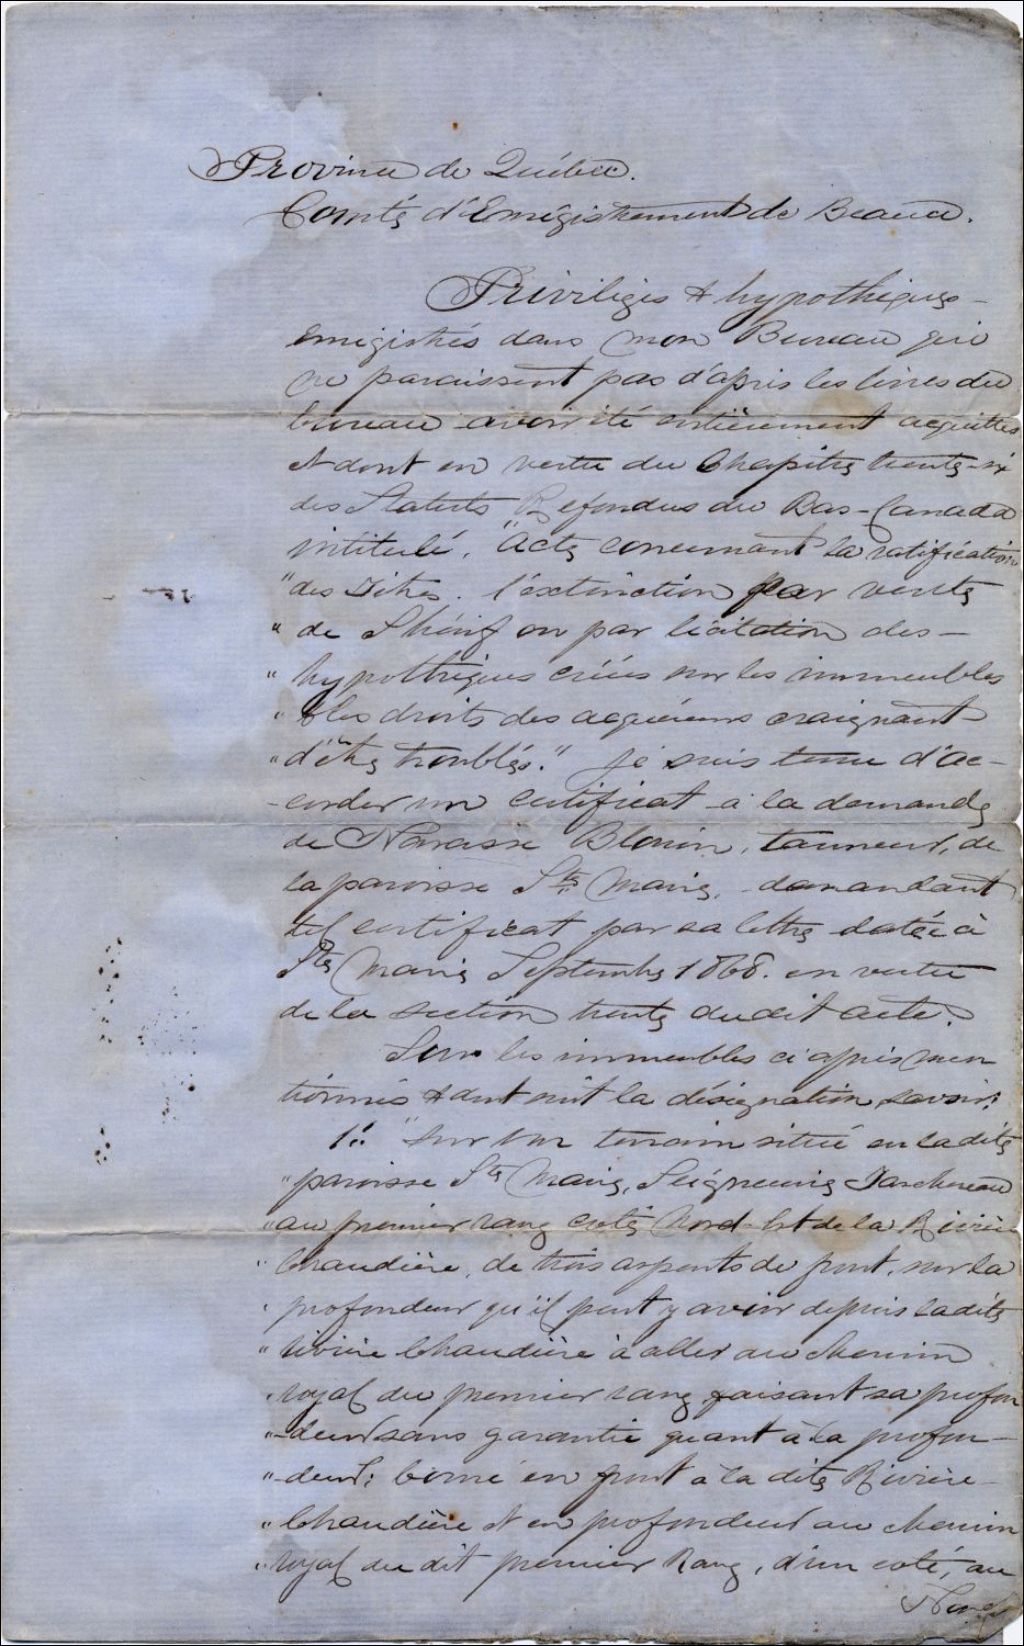 Province de Québec.
Comté d'Enrégistrement de Beauce.
Priviléges & hypothèques -
enrégistrés dans mon Bureau qui
ne paraissent pas d'après les livres du
bureau avoir été entièrement acquittés
et dont en vertu du Chapitre trente-six
des Statuts Refondus du Bas-Canada
intitulé, "Acte concernant la ratification
" des Titres. l'extinction par vente
" de Shérif ou par licitation des -
" hypothèques créées sur les immeubles
" & les droits des acquéreurs craignant
" d'être troublés." Je suis tenu d'ac-
-corder un certificat à la demande
de Narcisse Blouin, tanneur, de
la paroisse Ste Marie, demandant
tel certificat par sa lettre datée à
Ste Marie Septembre 1868. en vertu
de la section trente du dit acte.
Sur les immeubles ci après men
tionnés & dont suit la désignation savoir:
1°. "Sur un terrain situé en la dite
" paroisse Ste Marie, Seigneurie Taschereau
" au premier rang coté Nord-Est de la Rivière
" Chaudière, de trois arpents de front, sur la
" profondeur qu'il peut y avoir depuis la dite
" rivière Chaudière à aller au chemin
" royal du premier rang faisant sa profon
" -deur sans garantie quant à la profon-
" -deur; borné en front à la dite Rivière -
" Chaudière et en profondeur au chemin
" royal du dit premier Rang, d'un coté, au